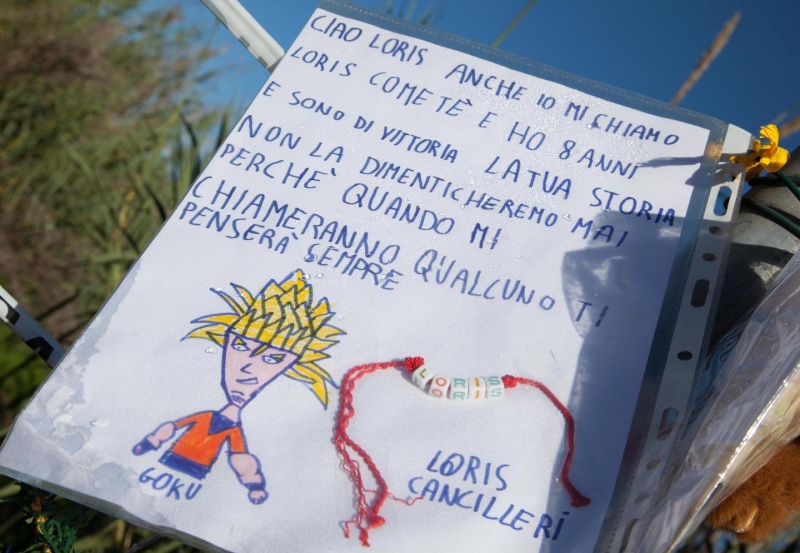 CIAO LORIS ANCHE IO MI CHIAMO
LORIS COME TÈ E HO 8 ANNI
E SONO DI VITTORIA LA TUA STORIA
NON LA DIMENTICHEREMO MAI
PERCHE' QUANDO MI
CHIAMERANNO QUALCUNO TI
PENSERA' SEMPRE
LORIS
GOKU
LORIS
CANCILLERI